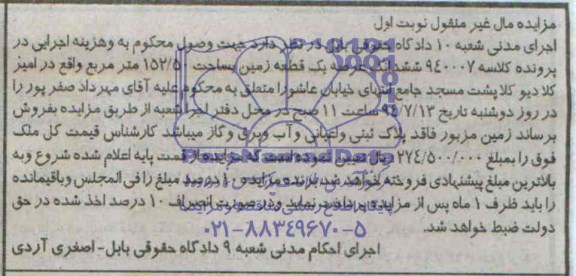 مزایده مال غیر منقول نوبت اول
اجرای مدنی شعبه ۱۰ دادگاه حقوقی بابل در نظر دارد جهت وصول محکوم به وهزینه اجرایی در
پرونده کلاسه ۹۴۰۰۰۷ ششدانگ عرصه یک قطعه زمین بمساحت ۱۵۲/۵ متر مربع واقع در امیر
کلا دیو کلا پشت مسجد جامع انتهای خیابان عاشورا متعلق به محکوم علیه آقای مهرداد صفر پور را
در روز دوشنبه تاریخ ۹۴/۷/۱۳ ساعت ۱۱ صبح در محل دفتر اجرا شعبه از طریق مزایده بفروش
برساند زمین مزبور فاقد پلاک ثبتی واعیانی وآب وبرق وگاز میباشد کارشناس قیمت کل ملک
فوق را بمبلغ ۲۷۴/۵۰۰/۰۰۰ ریال تعیین نموده است که مزایده از قیمت پایه اعلام شده شروع وبه
بالاترین مبلغ پیشنهادی فروخته خواهد شد برنده مزایده ۱۰ درصد مبلغ را فی المجلس وباقیمانده
را باید ظرف ۱ ماه پس از مزایده پرداخت نماید ودر صورت انصراف ۱۰ درصد اخذ شده در حق
دولت ضبط خواهد شد.
۰۲۱-۸۸۳۴۹۶۷۰-۵
اجرای احکام مدنی شعبه ۹ دادگاه حقوقی بابل- اصغری آردی